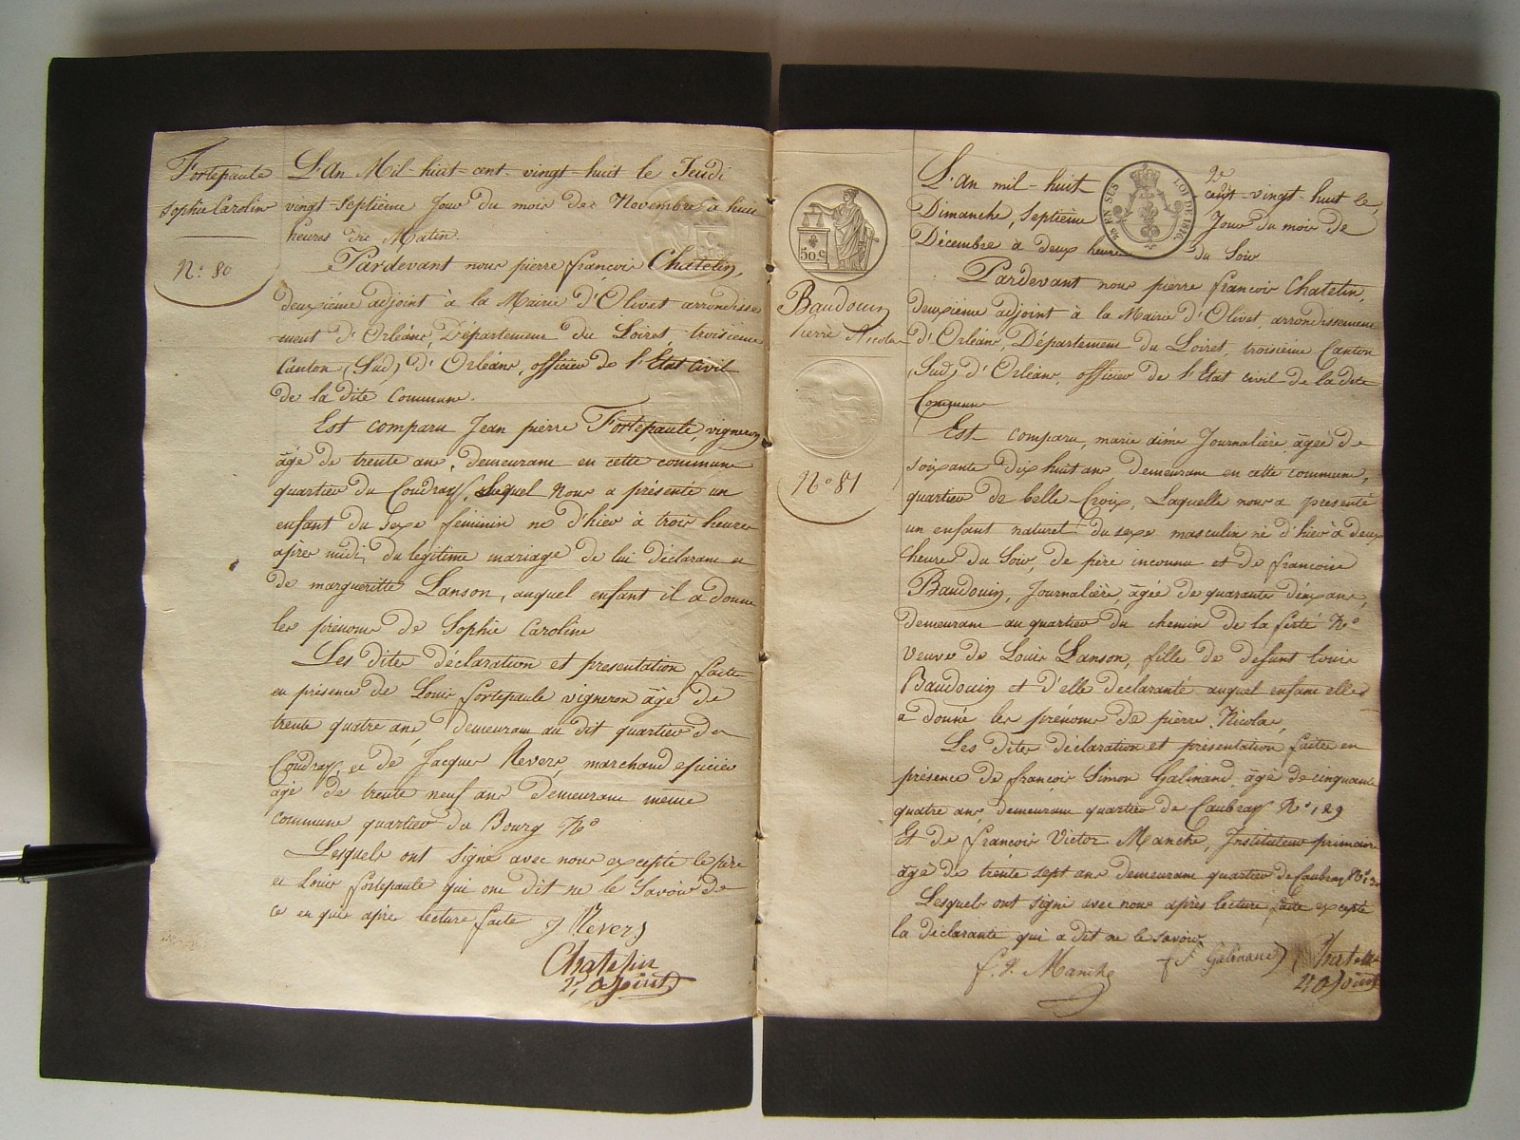 Fortepaule
Sophie Carolin
N.º 80
L'An Mil-huit-cent-vingt-huit le Jeudi
vingt-Septième Jour du mois de Novembre à huit
heures du Matin.
Pardevant nous pierre françois Chatelin,
deuxième adjoint à la Mairie d'Olivet arrondisse
ment d'Orléans, Département du Loiret, troisième
Canton (Sud) d'Orléans, officier de l'État Civil
de la dite Commune.
Est comparu Jean pierre Fortepaule, vigneron
âgé de trente ans, demeurant en cette commune
quartier du Coudray, Lequel Nous a présenté un
enfant du Sexe féminin né d'hier à trois heures
après midi, du légitime mariage de lui déclarant et
de margueritte Lanson, auquel enfant il a donné
les prénoms de Sophie Caroline
Les dites déclaration et présentation faites
en présence de Louis fortepaule vigneron âgé de
trente quatre ans demeurant au dit quartier du
Coudray, et de Jacques Nevers, marchand épicier
âgé de trente neuf ans demeurant même
commune quartier du Bourg Nº
Lesquels ont signé avec nous excepté le père
et Louis fortepaule qui ont dit ne le Savoir de
ce enquis après lecture faite J Nevers
Chatelin
2e adjoint
50 c
EN SUS
LOI DE 1816
Baudouin
Pierre Nicolas
Nº 81
2e
L'An mil-huit cent-vingt-huit le,
Dimanche, Septième Jour du mois de
Décembre à deux heures du Soir
Pardevant nous pierre françois Chatelin,
deuxième adjoint à la Mairie d'Olivet arrondissement
d'Orléans, Département du Loiret, troisième Canton
(Sud) d'Orléans, officier de l'État Civil de la dite
Commune
Est comparu, marie aimé Journalière, âgée de
soixante dix huit ans demeurant en cette commune,
quartier de belle-Croix, Laquelle nous a présenté
un enfant naturel du sexe masculin né d'hier à deux
heures du Soir, de père inconnu et de françoise
Baudouin, Journalière, âgée de quarante deux ans,
demeurant au quartier du chemin de la ferté Nº
veuve de Louis Lanson, fille de defunt Louis
Baudouin et d'elle declarante auquel enfant elle
a donné les prénoms de pierre Nicolas,
Les dites déclaration et présentation, faites en
présence de françois Simon Galinand, âgé de cinquante
quatre ans, demeurant quartier de Caubray Nº 129
Et de françois Victor Manche, Instituteur primaire
âgé de trente sept ans demeurant quartier de Caubray
Lesquels ont signé avec nous après lecture faite excepté
la déclarante qui a dit ne le savoir
f. V. Manche
f S Galinand
Chatelin
2e adjoint